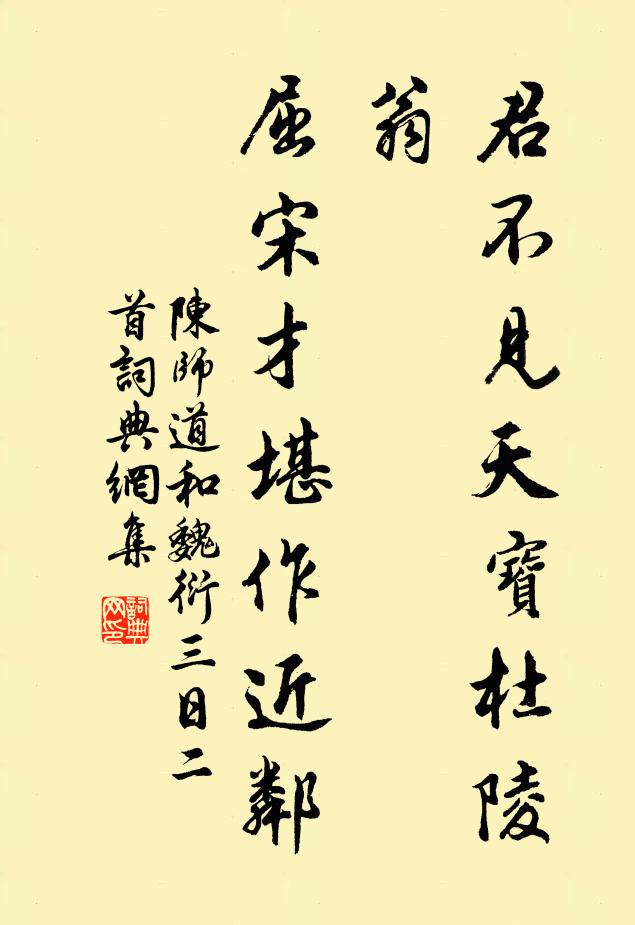 君不見天寶杜陵
翁
屈宋才堪作近鄰
陳師道和魏衍三日二
首詞典網集
詞典
网印